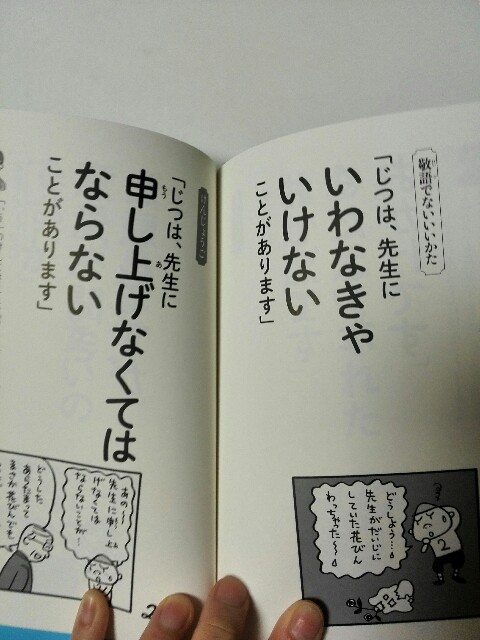 敬語でないいいかた
「じつは、先生に
いわなきゃ
いけない
ことがあります」
どうしよう…
先生がだいじに
していた花びん
わっちゃた〜
2
けんじょうご
「じつは、先生に
申し上げなくては
もう あ
ならない
ことがあります」
あの〜
先生に申し上
げなくては
ならないことが
どうした
あらたまって
まさか花びんでも
2